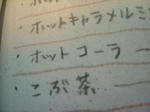 ・ホットキャラメルミ
・ホットコーラ ー
・こぶ茶 ー